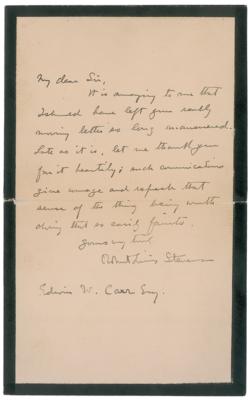 My dear Sir,
It is annoying to me that
I should have left your really
moving letter so long unanswered.
Late as it is, let me thank you
for it heartily; such communications
give courage and refresh that
sense of the thing being worth
doing that so easily faints.
Yours very truly
Robert Louis Stevenson
Edwin W. Carr Esq.